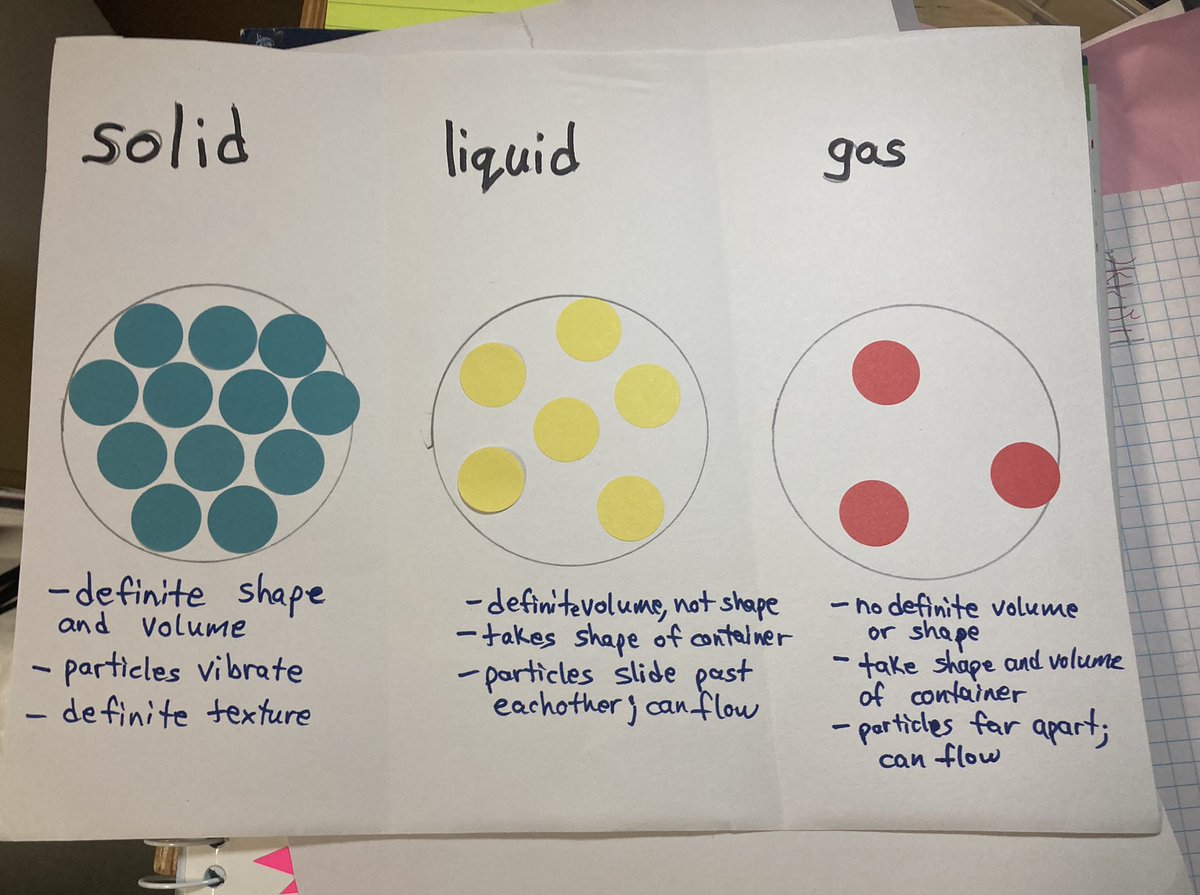 solid
- definite shape
and volume
- particles vibrate
- definite texture
liquid
- definite volume, not shape
- takes shape of container
- particles slide past
eachother; can flow
gas
- no definite volume
or shape
- take shape and volume
of container
- particles far apart;
can flow